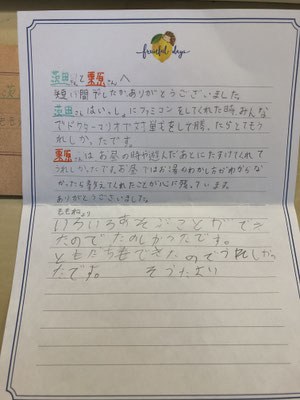 fruitful days
益田さんと栗原さんへ
短い間でしたがありがとうございました。
益田さんはいっしょにファミコンをしてくれた時、みんな
でドクターマリオで対戦をして勝ったらとてもう
れしかったです。
栗原さんはお昼の時や遊んだあとにたすけてくれて
うれしかったです。お昼ではお湯のわかし方がわからな
かったら教えてくれたことが心に残っています。
ありがとうございました。
ももねより
いろいろあそぶことができ
たのでたのしかったです。
ともだちもできたのでうれしかっ
たです。 そうたより